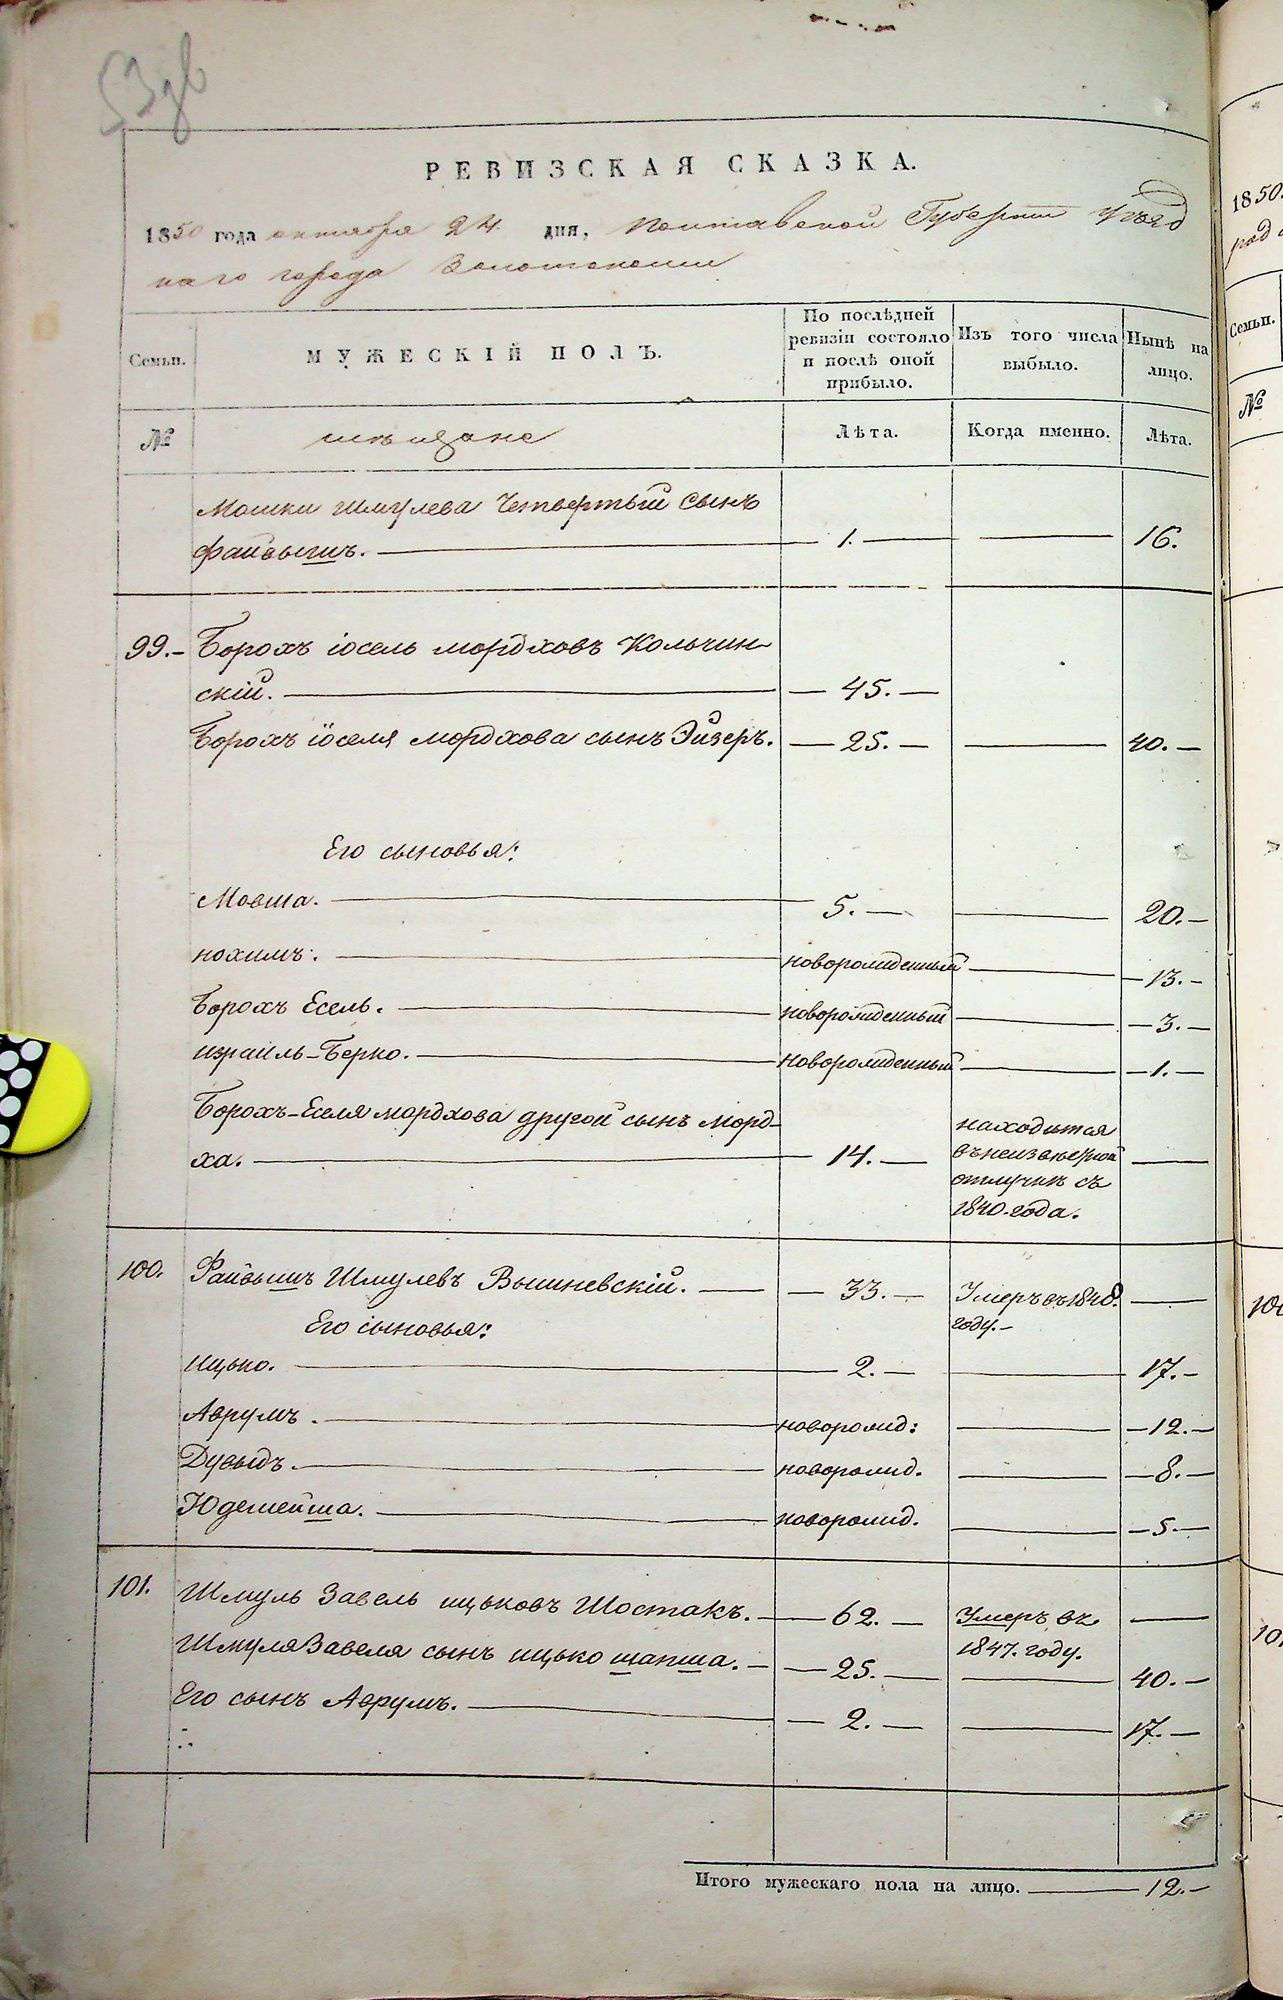 53 дв
РЕВИЗСКАЯ СКАЗКА.
1850 года октября 24 дня, Полтавской Губернии Уѣзд
наго города Золотоноши
Семьи.
МУЖЕСКІЙ ПОЛЪ.
По послѣдней
ревизіи состояло
и послѣ оной
прибыло.
Изъ того числа
выбыло.
Нынѣ на
лицо.
№
мѣщане
Лѣта.
Когда именно.
Лѣта.
Мошки Шмулева Четвертый Сынъ
Файвышъ. — 1. — — 16.
99.- Борохъ іосель мордховъ Кольчин-
скій. — 45. —
Борохъ іоселя мордхова сынъ Эйзеръ. — 25. — — 40. —
Его сыновья:
Мовша. — 5. — — 20. —
нохимъ. — новорожденный — 13. —
Борохъ Есель. — новорожденный — 3. —
израиль-Берко. — новорожденный — 1. —
Борохъ-Еселя мордхова другой сынъ морд-
ха. — 14. —
находится
въ неизвѣстной
отлучкѣ съ
1840. года. —
100. Файвышъ Шмулевъ Вышневскій. — 33. — Умеръ въ 1848. —
году. —
Его сыновья:
ицько. — 2. — — 17. —
Аврумъ. — новорожд: — 12. —
Дувыдъ. — новорожд. — 8. —
Юдемейша. — новорожд. — 5. —
101. Шмуль Завель ицьковъ Шостакъ. — 62. — Умеръ въ —
1847. году.
Шмуля Завеля сынъ ицько шапша. — 25. — — 40. —
Его сынъ Аврумъ. — 2. — — 17. —
Итого мужескаго пола на лицо. — 12. —
1850.
Семьи.
№